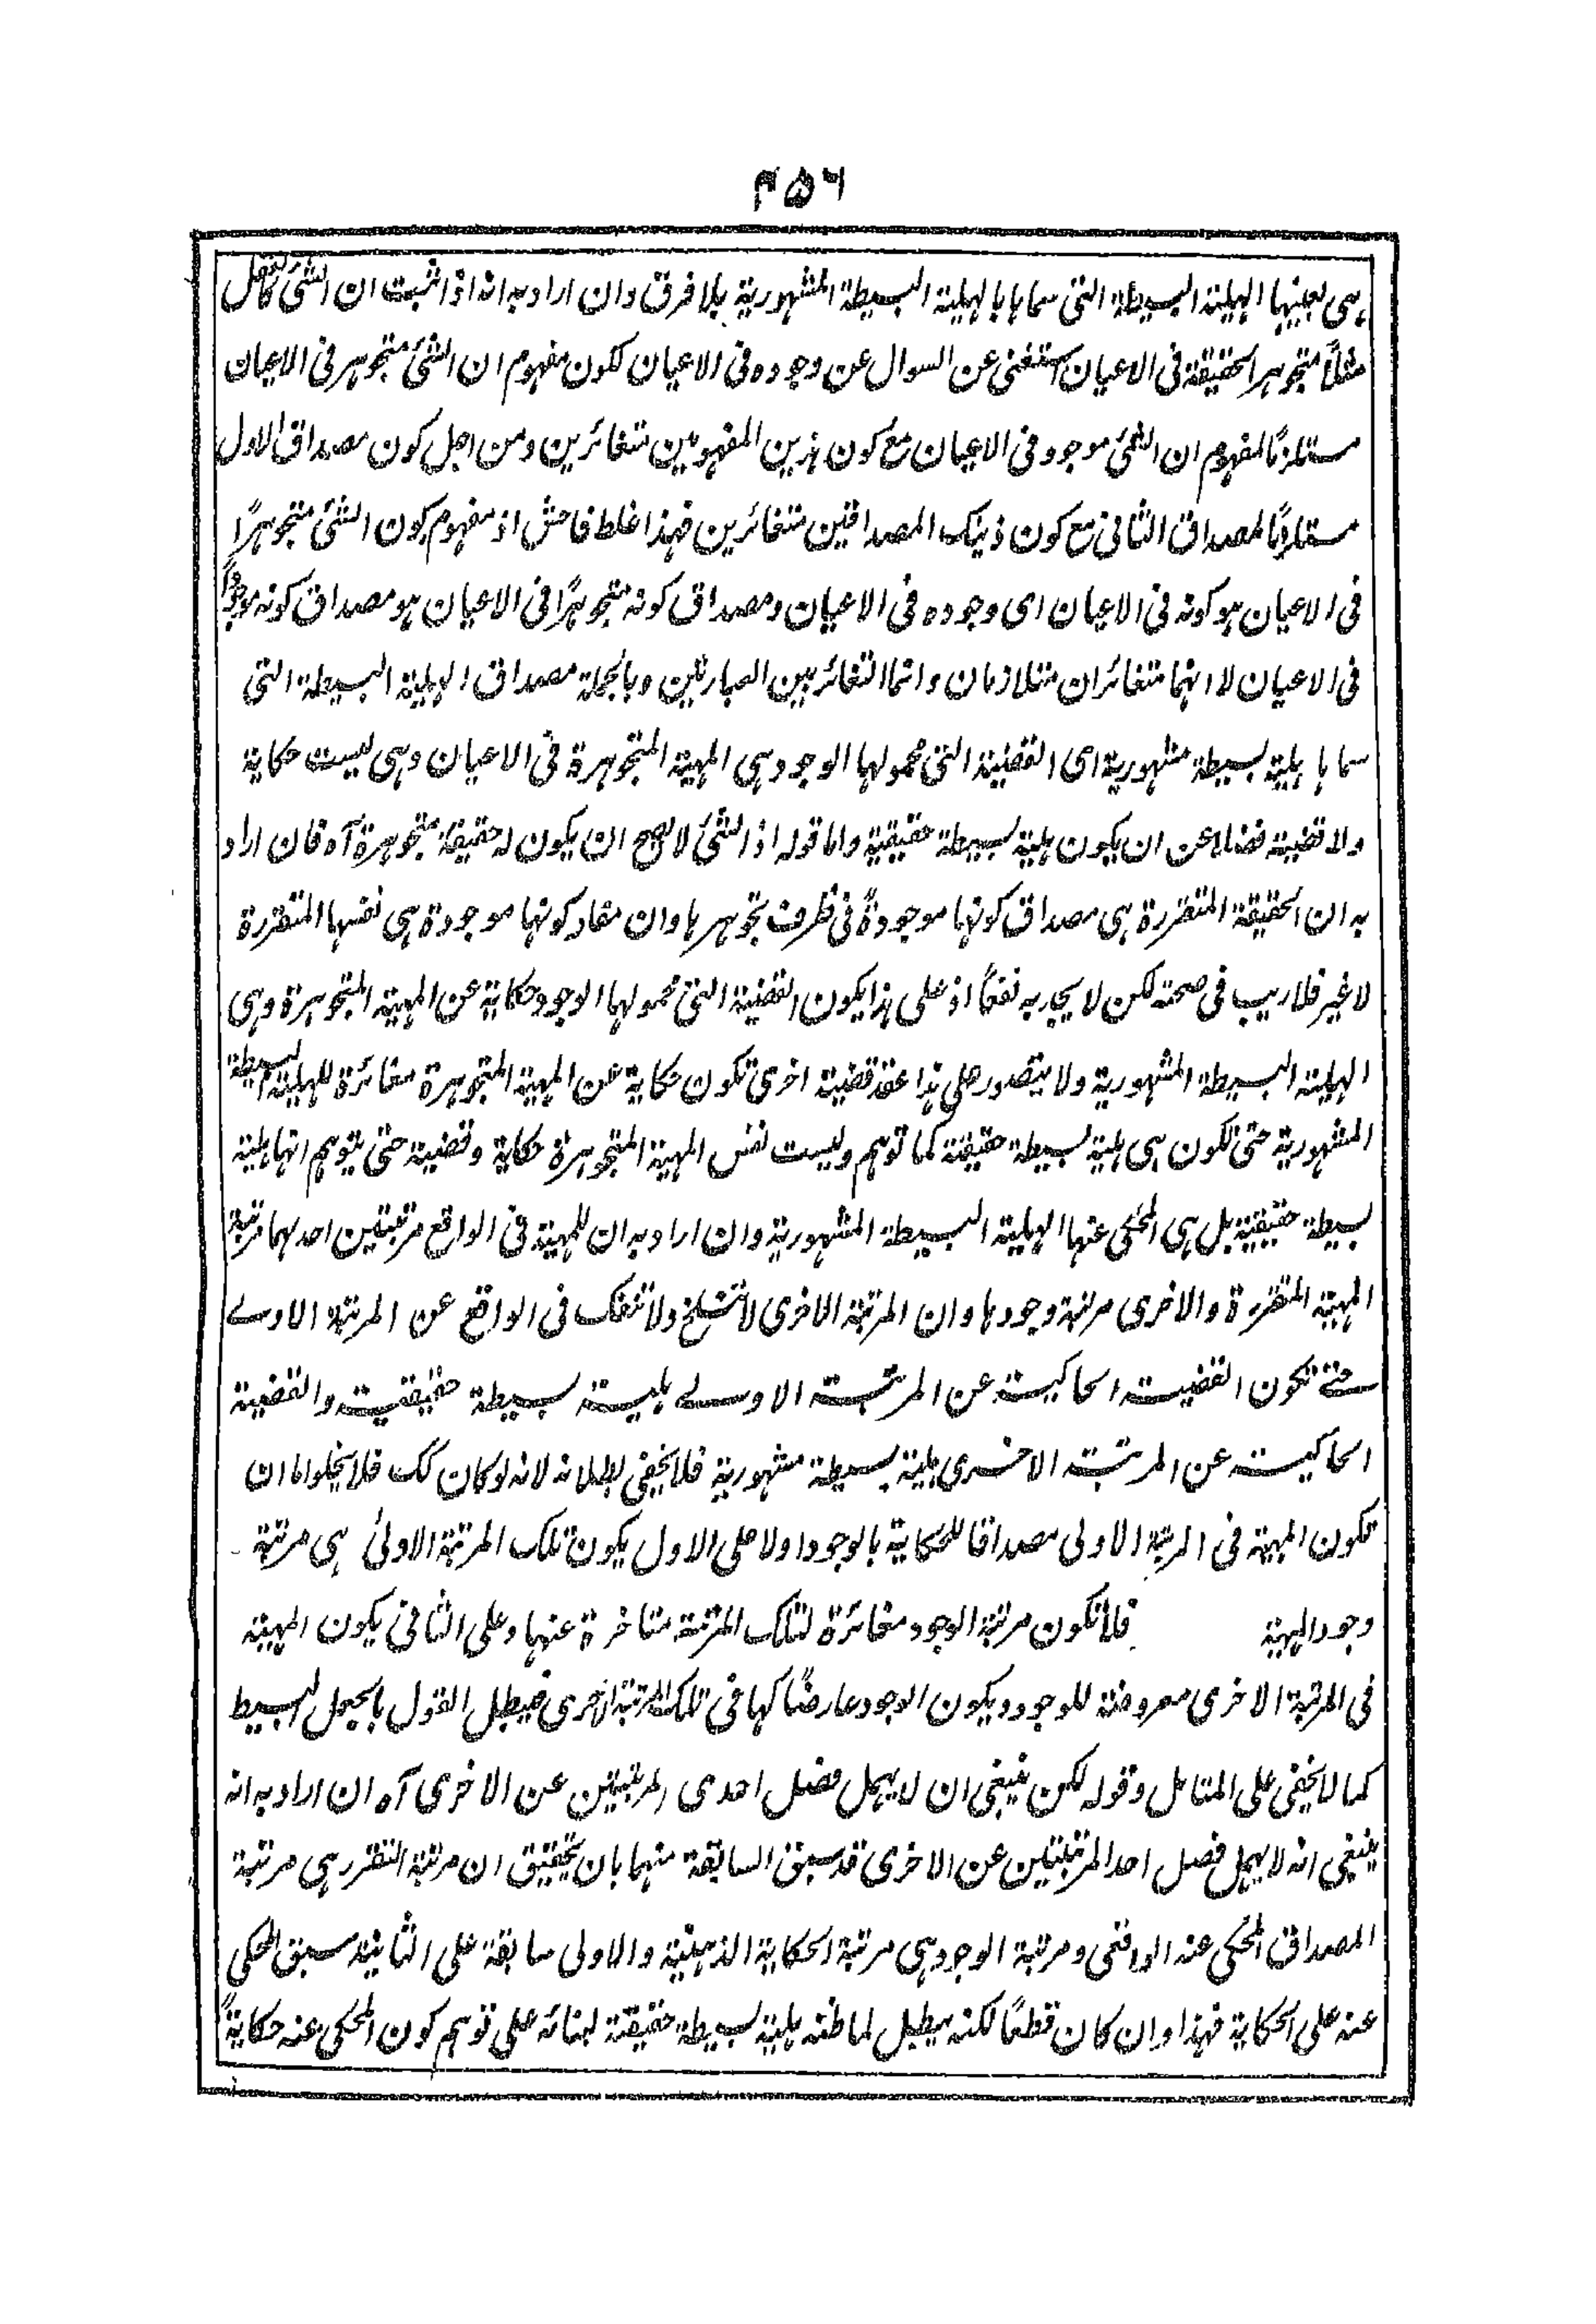 ۴۵۶
هی بعینها الهلیة البسیطة التی سماها بالهلیة البسیطة المشهوریة بلا فرق وان اراد به انه اذا ثبت ان الشئ کالعقل
مثلاً متجوهر الحقیقة فی الاعیان استغنی عن السوال عن وجوده فی الاعیان لکون مفهوم ان الشئ متجوهر فی الاعیان
مستلزمًا لمفهوم ان الشئ موجود فی الاعیان مع کون هذین المفهومین متغائرین ومن اجل کون مصداق الاول
مستلزمًا لمصداق الثانی مع کون ذینک المصداقین متغائرین فهذا غلط فاحش اذ مفهوم کون الشئ متجوهرًا
فی الاعیان هو کونه فی الاعیان ای وجوده فی الاعیان ومصداق کونه متجوهرًا فی الاعیان هو مصداق کونه موجودًا
فی الاعیان لا انهما متغائران متلازمان وانما التغائر بین العبارتین وبالجملة مصداق الهلیة البسیطة التی
سماها هلیة بسیطة مشهوریة ای القضیة التی محمولها الوجود هی المهیة المتجوهرة فی الاعیان وهی لیست حکایة
ولا قضیة فضلا عن ان یکون هلیة بسیطة حقیقیة واما قوله اذ الشئ لا یصح ان یکون له حقیقة متجوهرة آه فان اراد
به ان الحقیقة المتقررة هی مصداق کونها موجودةً فی ظرف تجوهرها وان مفاد کونها موجودة هی نفسها المتقررة
لا غیر فلا ریب فی صحته لکن لا یجدیه نفعًا اذ علی هذا یکون القضیة التی محمولها الوجود حکایة عن المهیة المتجوهرة وهی
الهلیة البسیطة المشهوریة ولا یتصور علی هذا عقد قضیة اخری تکون حکایة عن المهیة المتجوهرة مغائرة للهلیة البسیطة
المشهوریة حتی تکون هی هلیة بسیطة حقیقة کما توهم ولیست نفس المهیة المتجوهرة حکایة وقضیة حتی یتوهم انها هلیة
بسیطة حقیقیة بل هی المحکی عنها الهلیة البسیطة المشهوریة وان اراد به ان للمهیة فی الواقع مرتبتین احدهما مرتبة
المهیة المتقررة والاخری مرتبة وجودها وان المرتبة الاخری لا تنسلخ ولا تنفک فی الواقع عن المرتبة الاولے
حتے تکون القضیة الحاکیة عن المرتبة الاولے هلیة بسیطة حقیقیة والقضیة
الحاکیة عن المرتبة الاخری هلیة بسیطة مشهوریة فلا یخفی بطلانه لانه لو کان کک فلا یخلوا ما ان
تکون المهیة فی المرتبة الاولی مصداقا للحکایة بالوجود اولا علی الاول یکون تلک المرتبة الاولیٰ هی مرتبة
وجود المهیة فلا تکون مرتبة الوجود مغائرة لتلک المرتبة متاخرة عنها وعلی الثانی یکون المهیة
فی المرتبة الاخری معروضة للوجود ویکون الوجود عارضًا لها فی تلک المرتبة الاخری فیبطل القول بالجعل البسیط
کما لا یخفی علی المتامل وقوله لکن ینبغی ان لا یهمل فصل احدی المرتبتین عن الاخری آه ان اراد به انه
ینبغی انه لا یهمل فصل احد المرتبتین عن الاخری قد سبق السابقة منهما بان تحقیق ان مرتبة التقرر هی مرتبة
المصداق المحکی عنه الواقعی ومرتبة الوجود هی مرتبة الحکایة الذهنیة والاولی سابقة علی الثانیة سبق المحکی
عنه علی الحکایة فهذا وان کان قطعًا لکنه یبطل لما ظنه هلیة بسیطة حقیقة لبنائه علی توهم کون المحکی عنه حکایةً